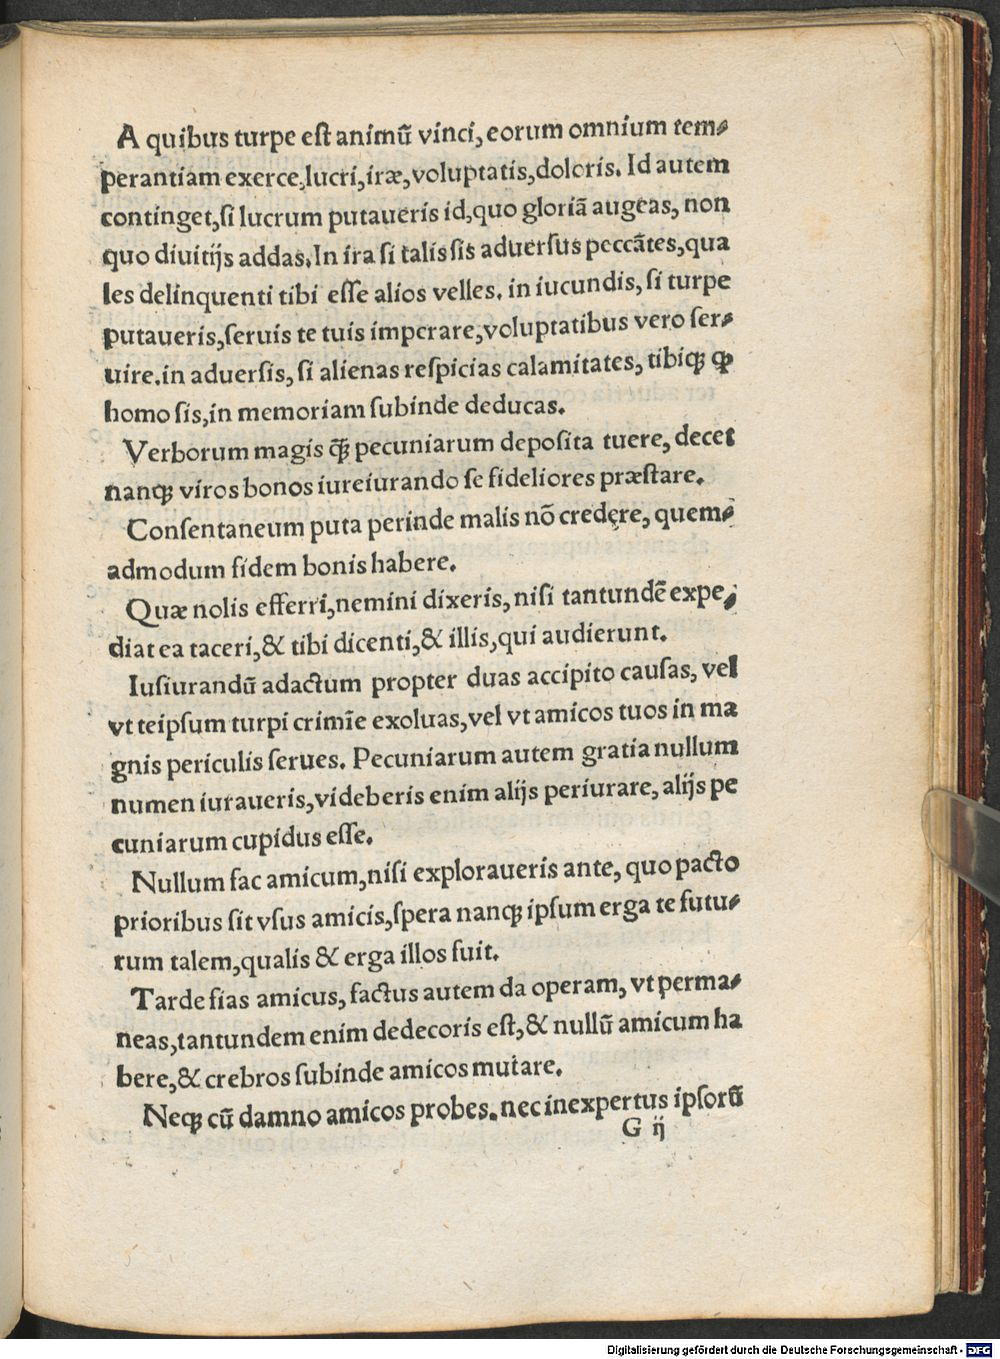 A quibus turpe est animū vinci, eorum omnium tem⸗
perantiam exerce, lucri, iræ, voluptatis, doloris. Id autem
continget, si lucrum putaueris id, quo gloriā augeas, non
quo diuitijs addas. In ira si talis sis aduersus peccātes, qua
les delinquenti tibi esse alios velles. in iucundis, si turpe
putaueris, seruis te tuis imperare, voluptatibus vero ser⸗
uire. in aduersis, si alienas respicias calamitates, tibiqꝫ ꝙ
homo sis, in memoriam subinde deducas.
Verborum magis q̄ꝫ pecuniarum deposita tuere, decet
nanqꝫ viros bonos iureiurando se fideliores præstare.
Consentaneum puta perinde malis nō credęre, quem⸗
admodum fidem bonis habere.
Quæ nolis efferri, nemini dixeris, nisi tantundē expe⸗
diat ea taceri, & tibi dicenti, & illis, qui audierunt.
Iusiurandū adactum propter duas accipito causas, vel
vt teipsum turpi crimīe exoluas, vel vt amicos tuos in ma
gnis periculis serues. Pecuniarum autem gratia nullum
numen iuraueris, videberis enim alijs periurare, alijs pe
cuniarum cupidus esse.
Nullum fac amicum, nisi exploraueris ante, quo pacto
prioribus sit vsus amicis, spera nanqꝫ ipsum erga te futu⸗
rum talem, qualis & erga illos fuit.
Tarde fias amicus, factus autem da operam, vt perma⸗
neas, tantundem enim dedecoris est, & nullū amicum ha
bere, & crebros subinde amicos mutare.
Neqꝫ cū damno amicos probes. nec inexpertus ipsorū
G ij
Digitalisierung gefördert durch die Deutsche Forschungsgemeinschaft - DFG